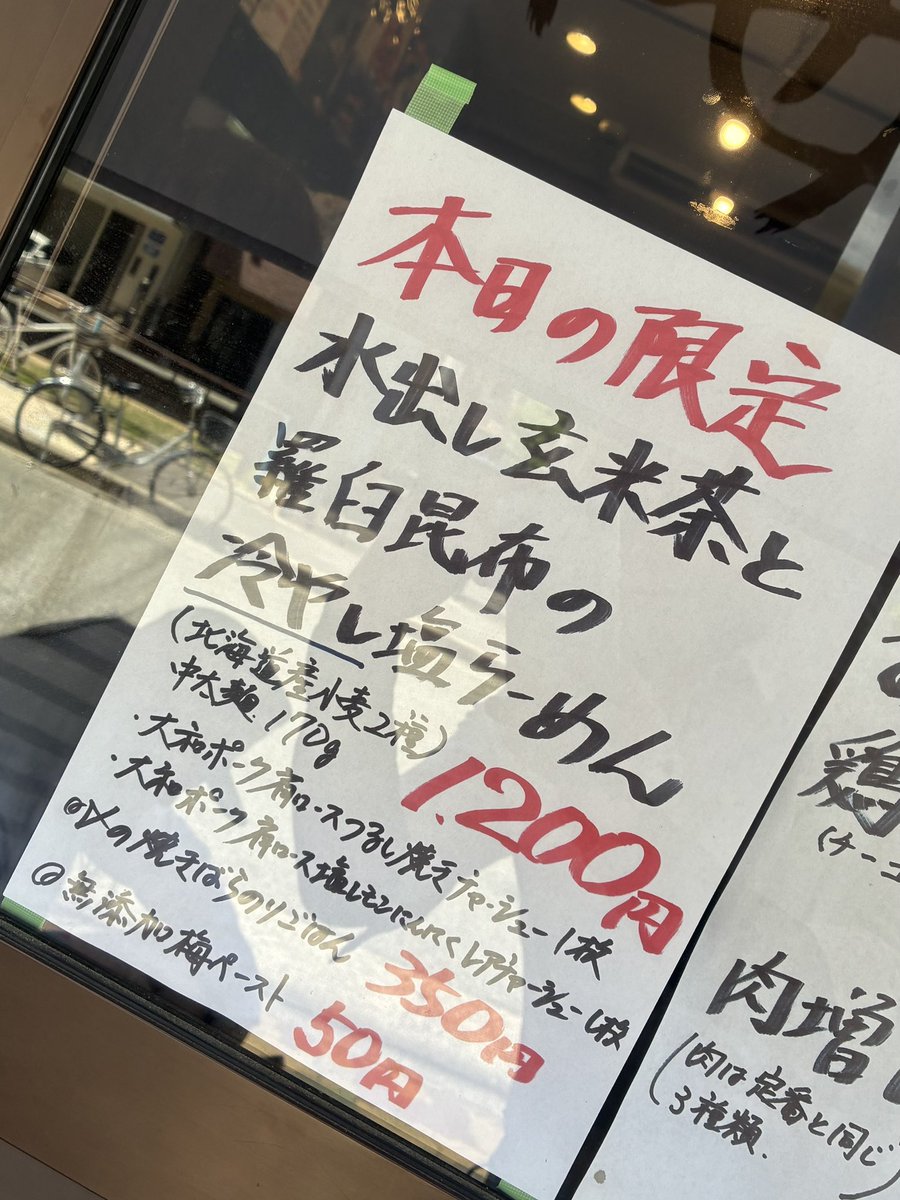 本日の限定
水出し玄米茶と
羅臼昆布の
冷やし塩らーめん
(北海道産小麦2種)
中太麺 170g
1.200円
・大和ポーク肩ロースつるし焼きチャーシュー1枚
・大和ポーク肩ロース塩レモンにんにくレアチャーシュー1枚
@〆の焼きばらのりごはん 350円
@無添加梅ペースト 50円
鶏
(チー
肉増
(肉は定番と同じ
3種類.